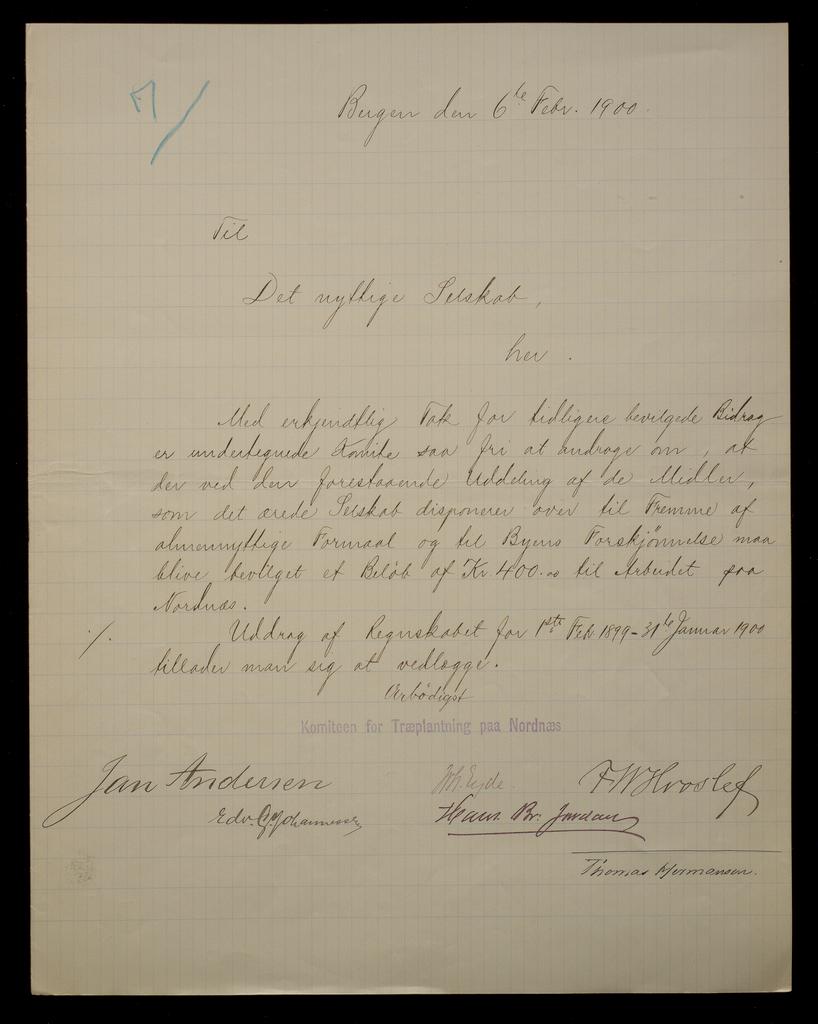 Bergen den 6te Febr. 1900.
Til
Det nyttige Selskab,
her.
Med erkjendtlig Tak for tidligere bevilgede Bidrag
er undertegnede Komite saa fri at andrage om, at
der ved den forestaaende Uddeling af de Midler,
som det ærede Selskab disponerer over til Fremme af
almennyttige Formaal og til Byens Forskjønnelse maa
blive bevilget et Beløb af Kr. 400.00 til Arbeidet paa
Nordnæs.
./. Uddrag af Regnskabet for 1ste Feb. 1899 - 31te Januar 1900
tillader man sig at vedlægge.
Ærbødigst
Komiteen for Træplantning paa Nordnæs
Jan Andersen Joh. Eyde. F W Hvoslef
Edv. G. Johannessen Hans Br. Jordan
Thomas Hermansen.